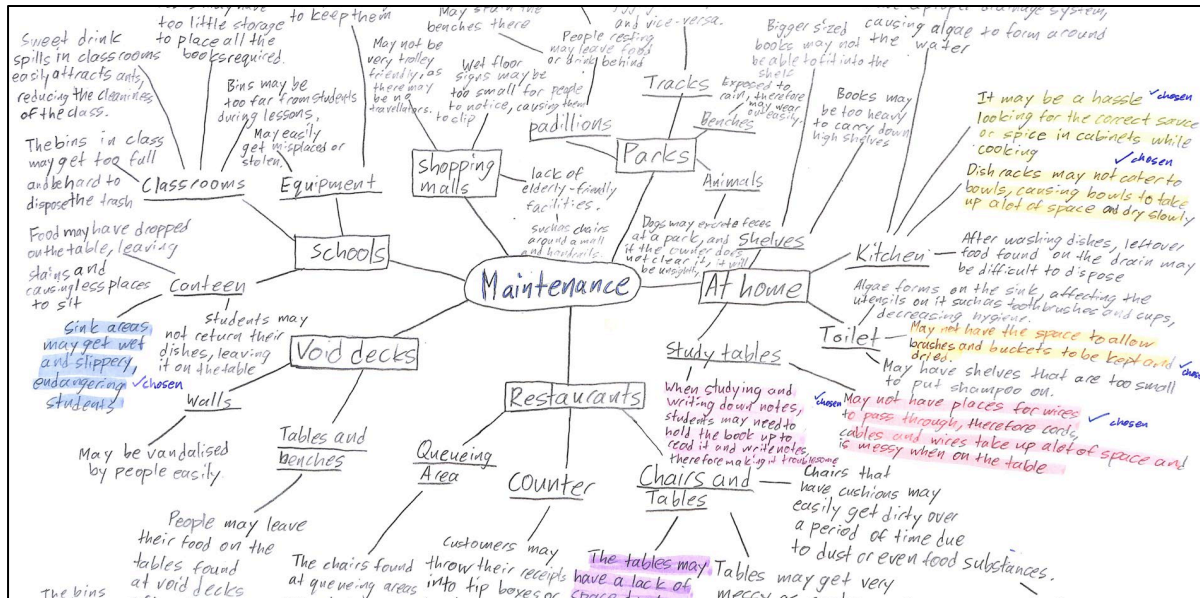 too little storage
to place all the
books required.
to keep them
Sweet drink
spills in classrooms
easily attracts ants,
reducing the cleaniness
of the class.
Bins may be
too far from students
during lessons.
May easily
get misplaced or
stolen.
The bins in class
may get too full
and be hard to
dispose the trash
Classrooms
Equipment
Schools
Food may have dropped
on the table, leaving
stains and
causing less places
to sit
Canteen
Sink areas
may get wet
and slippery,
endangering
students
✓chosen
Students may
not return their
dishes, leaving
it on the table
benches there
May not be
very trolley
friendly, as
there may
be no
travellators.
Wet floor
signs may be
too small for people
to notice, causing them
to clip
shopping
malls
lack of
elderly-friendly
facilities.
such as chairs
around a mall
and handrails.
and vice-versa.
People resting
may leave food
or drink behind
padillions
Tracks
Parks
Benches
Exposed to
rain, therefore
may wear
out easily.
Animals
Dogs may excrete feces
at a park, and
if the owner does
not clear it, it will
be unsightly
Maintenance
Bigger sized
books may not
be able to fit into the
shelf
Books may
be too heavy
to carry down
high shelves
Shelves
At home
causing algae to form around
the water
It may be a hassle ✓chosen
looking for the correct sauce
or spice in cabinets while
cooking
✓chosen
Dish racks may not cater to
bowls, causing bowls to take
up alot of space and dry slowly
Kitchen
After washing dishes, leftover
food found on the drain may
be difficult to dispose
Algae forms on the sink, affecting the
utensils on it such as toothbrushes and cups,
decreasing hygiene.
Toilet
May not have the space to allow
brushes and buckets to be kept and
dried.
May have shelves that are too small
to put shampoo on.
Study tables
When studying and
writing down notes,
students may need to
hold the book up to
read it and write notes,
therefore making it troublesome
✓chosen
May not have places for wires
to pass through, therefore cords,
cables and wires take up alot of space and
is messy when on the table
✓chosen
Void decks
Walls
May be vandalised
by people easily.
Tables and
benches
People may leave
their food on the
tables found
at void decks
The bins
Restaurants
Queueing
Area
The chairs found
at queueing areas
Counter
Customers may
throw their receipts
into tip boxes or
Chairs and
Tables
Chairs that
have cushions may
easily get dirty over
a period of time due
to dust or even food substances.
The tables may
have a lack of
Tables may get very